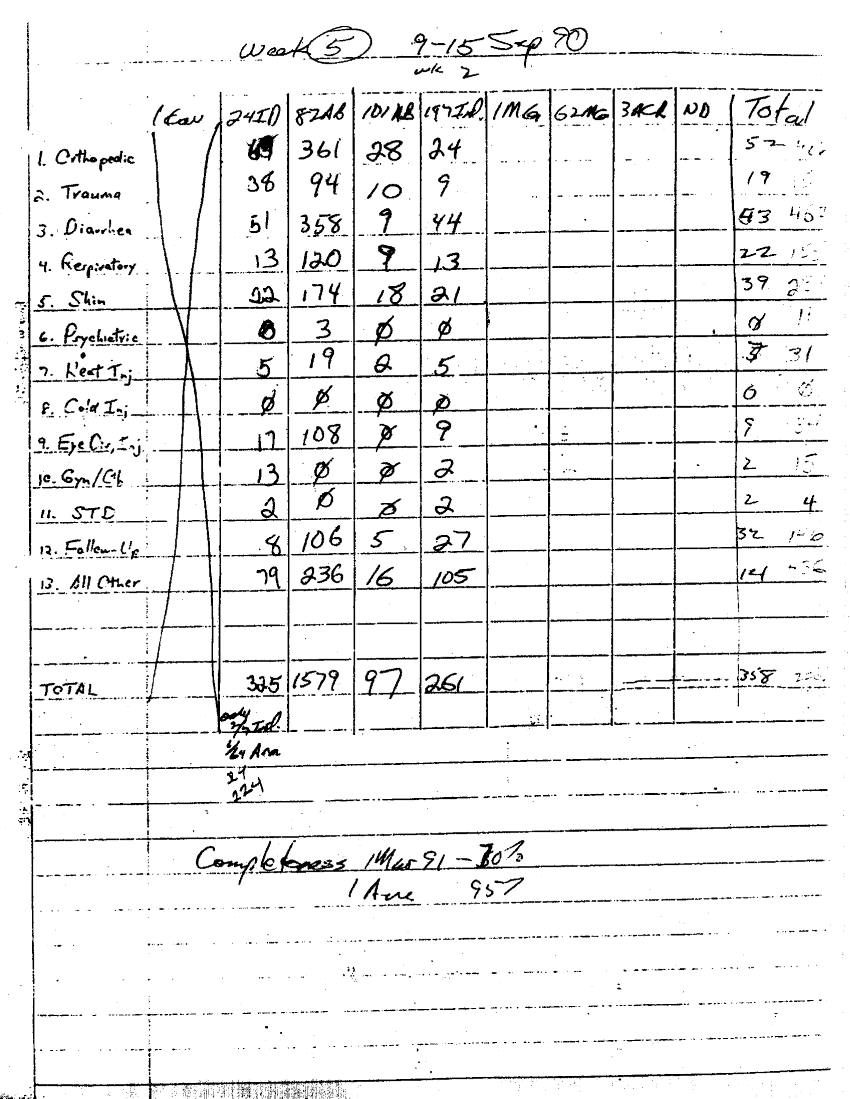 Week 5 9-15 Sep 90
wk 2
1 Cav 24ID 82AB 101AB 197Inf. 1MG 62MG 3ACR ND Total
1. Orthopedic 361 28 24 52
2. Trauma 38 94 10 9 19
3. Diarrhea 51 358 9 44
4. Respiratory 13 120 9 13 22
5. Skin 22 174 18 21 39
6. Psychiatric 3 ø ø ø 11
7. Heat Inj 5 19 2 5 31
8. Cold Inj ø ø ø ø 0 ø
9. Eye Inj 17 108 ø 9 9
10. Gyn/ 13 ø ø 2 2 15
11. STD 2 ø ø 2 2 4
12. Follow-Up 8 106 5 27 32
13. All Other 79 236 16 105
TOTAL 325 1579 97 261 358
only
Inf.
24
224
Completeness 1 Mar 91 - 70%
1 95%